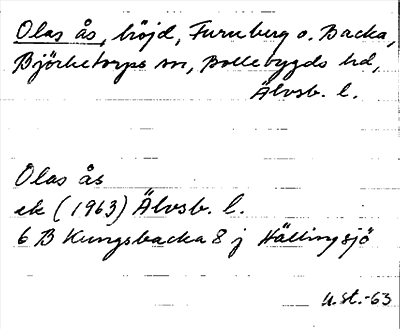 Olas ås, höjd, Furuberg o. Backa,
Björketorps sn, Bollebygds hd,
Älvsb. l.
Olas ås
ek (1963) Älvsb. l.
6 B Kungsbacka 8 j Hällingsjö
U.St.-63